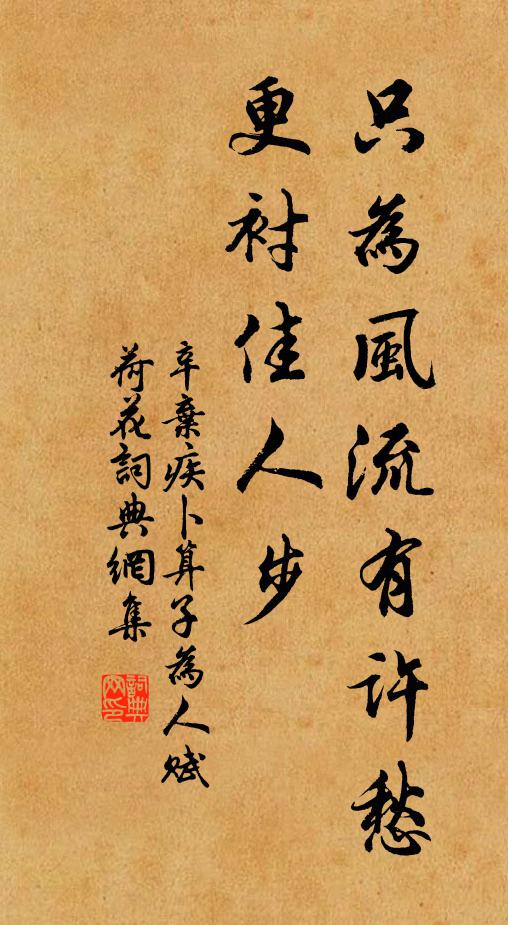 只為風流有許愁
更衬佳人步
辛棄疾卜算子為人賦
荷花詞典網集
詞典網印